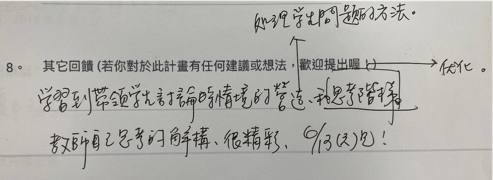 處理學生問題的方法。
8。 其它回饋 (若你對於此計畫有任何建議或想法，歡迎提出喔！)
→優化。
學習到帶領學生討論時情境的營造、和思考階梯
教師自己思考的解構、很精彩、6/13(六)見！